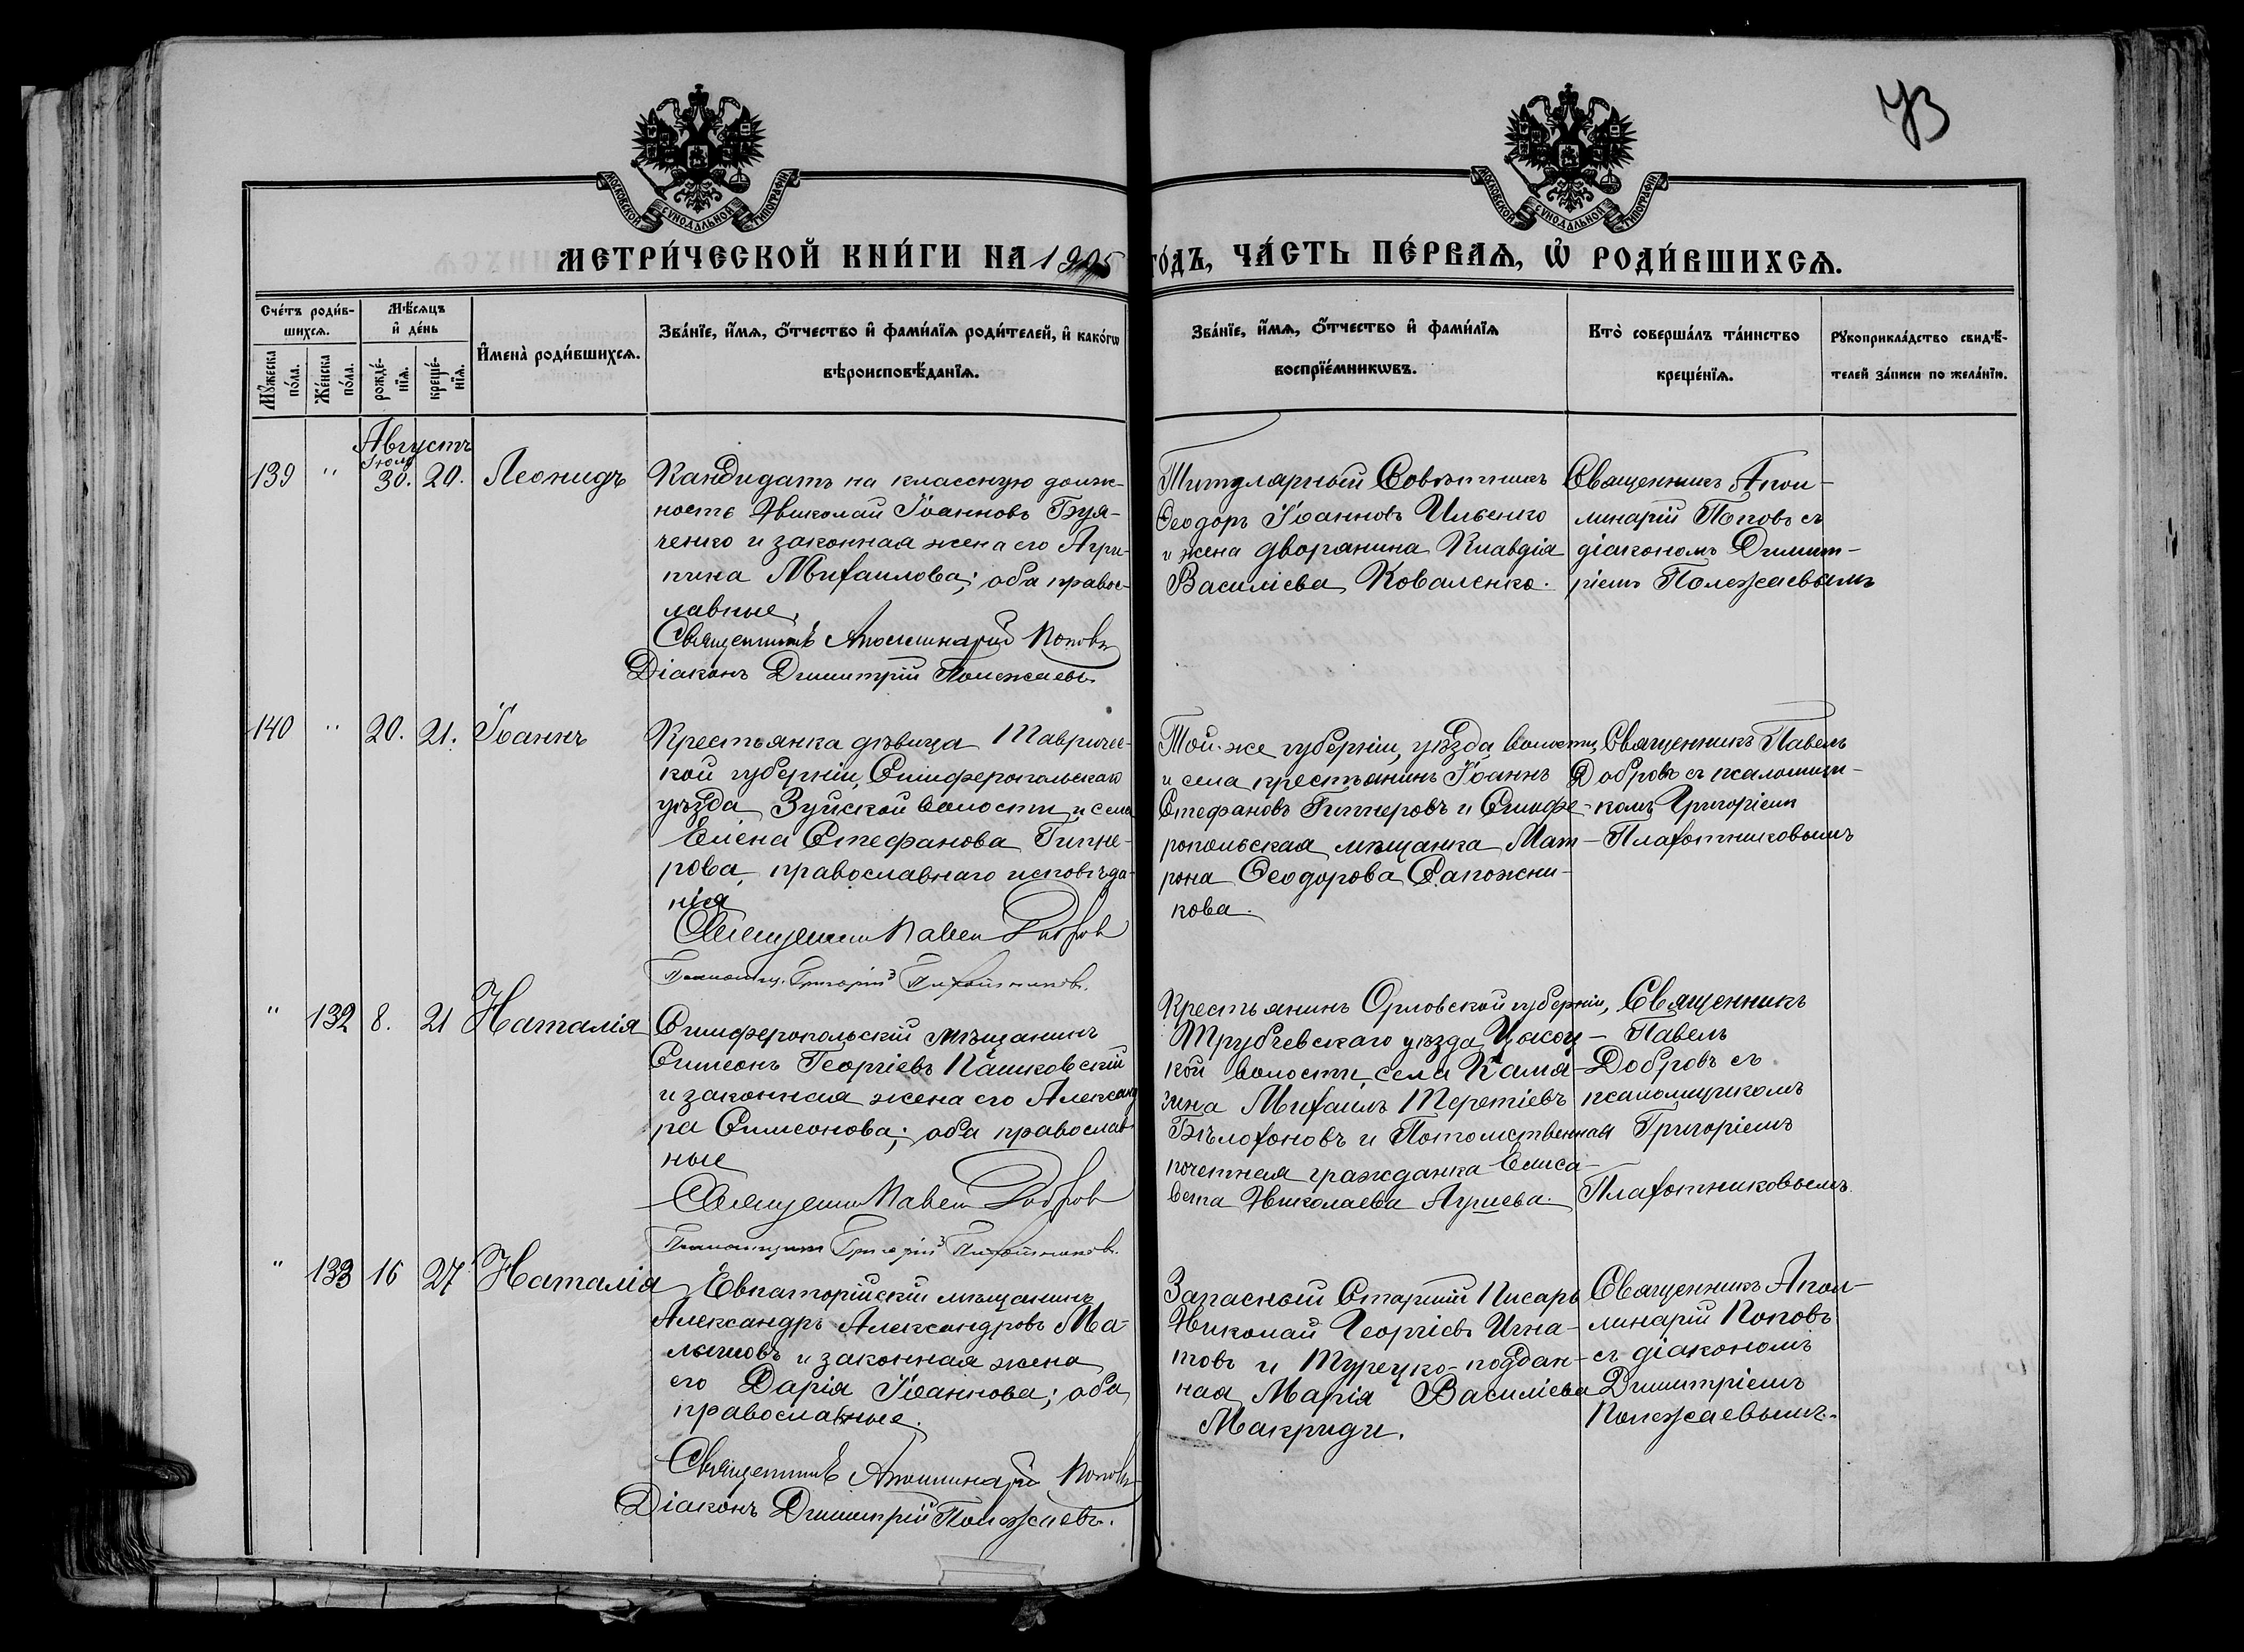 43
МОСКОВСКОЙ СѴНОДАЛЬНОЙ ТИПОГРАФІИ
МОСКОВСКОЙ СѴНОДАЛЬНОЙ ТИПОГРАФІИ
МЕТРИ́ЧЕСКОЙ КНИ́ГИ НА 1905 ГО́ДЪ, ЧА́СТЬ ПЕ́РВАѦ, Ѡ҆ РОДИ́ВШИХСѦ.
Сче́тъ роди́в-
шихсѧ.
Мꙋ́жеска по́ла.
Же́нска по́ла.
Мѣ́сѧцъ
и҆ де́нь
рожде́-
нїѧ.
креще́-
нїѧ.
И҆мена̀ роди́вшихсѧ.
Зва́нїе, и҆́мѧ, ѻ҆́тчество и҆ фами́лїѧ роди́телей, и҆ како́гѡ
вѣроисповѣ́данїѧ.
Зва́нїе, и҆́мѧ, ѻ҆́тчество и҆ фами́лїѧ
воспрїе́мникѡвъ.
Кто̀ соверша́лъ та́инство
креще́нїѧ.
Рꙋкоприкла́дство свидѣ́-
телей за́писи по жела́нїю.
Августъ
Іюля
139 " 30. 20. Леонидъ
Кандидатъ на классную долж-
ность Николай Іоанновъ Буя-
ченко и законная жена его Агри-
пина Михаилова; оба правос-
лавные.
Священникъ Аполлинарій Поповъ
Діаконъ Димитрій Полежаевъ
Титулярный Совѣтникъ
Ѳеодоръ Іоанновъ Ильенко
и жена дворянина Клавдія
Василіева Коваленко.
Священникъ Апол-
линарій Поповъ съ
діакономъ Димит-
ріемъ Полежаевымъ
140 " 20. 21. Іоаннъ
Крестьянка дѣвица Тавричес-
кой губерніи, Симферопольскаго
уѣзда Зуйской волости и села
Елена Стефанова Гитне-
рова, православнаго исповѣда-
нія
Священникъ Павелъ Добровъ
Псаломщ. Григорій Плахотниковъ.
Той-же губерніи, уѣзда, волости
и села крестьянинъ Іоаннъ
Стефановъ Гитнеровъ и Симфе-
ропольская мѣщанка Мат-
рона Ѳеодорова Сапожни-
кова.
Священникъ Павелъ
Добровъ съ псаломщи-
комъ Григоріемъ
Плахотниковымъ
" 132 8. 21 Наталія
Симферопольскій мѣщанинъ
Симеонъ Георгіевъ Пашковскій
и законная жена его Александ
ра Симеонова; оба православ-
ные
Священникъ Павелъ Добровъ
Псаломщикъ Григорій Плахотниковъ.
Крестьянинъ Орловской губерніи,
Трубчевскаго уѣзда,
кой волости, села
Михаилъ Терентіевъ
Бѣлохоновъ и Потомственная
почетная гражданка Елиса-
вета Николаева
Священникъ
Павелъ
Добровъ съ
псаломщикомъ
Григоріемъ
Плахотниковымъ.
" 133 16 27 Наталія
Евпаторійскій мѣщанинъ
Александръ Александровъ Ма-
лышовъ и законная жена
его Дарія Іоаннова; оба
православные.
Священникъ Аполлинарій Поповъ
Діаконъ Димитрій Полежаевъ.
Запасный Старшій Писарь
Николай Георгіевъ Игна-
товъ и Турецко-поддан-
ная Марія Василіева
Макриди.
Священникъ Апол-
линарій Поповъ
съ діакономъ
Димитріемъ
Полежаевымъ.